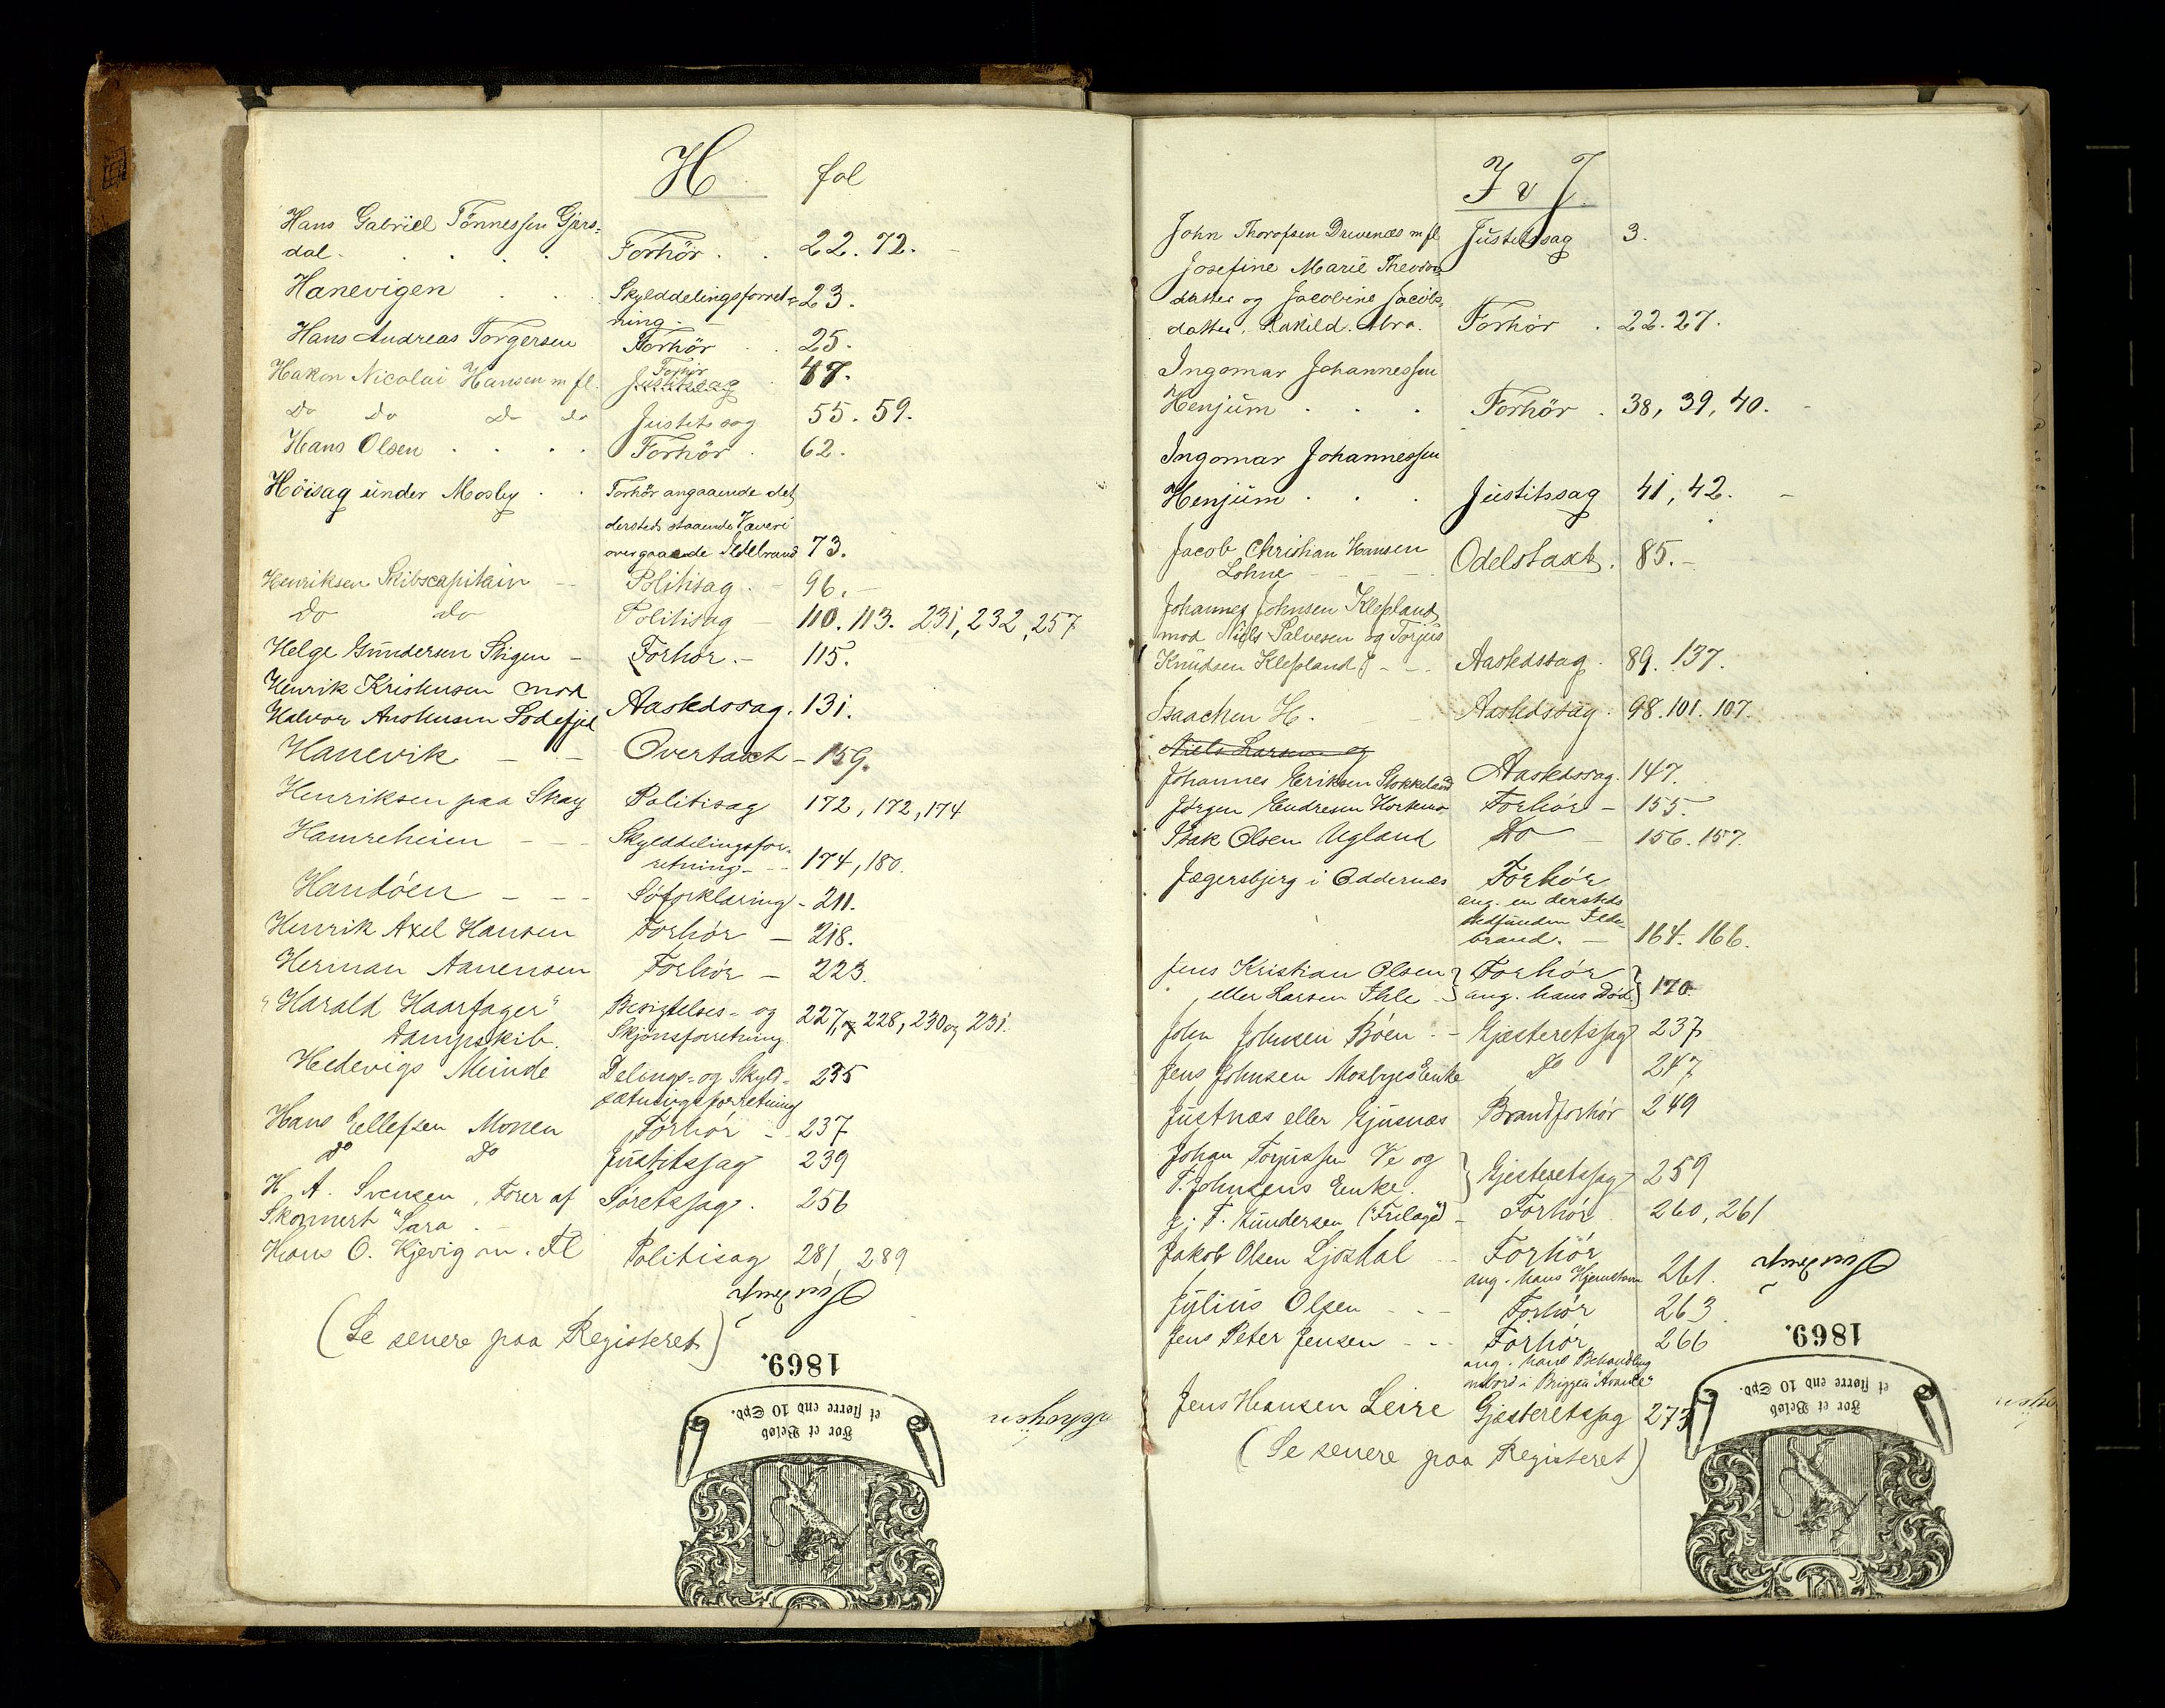 H. fol
Hans Gabriell Tönnessen Gjers-
dal. . . . . Forhör . . 22. 72.
Hanevigen . . . Skylddelingsforret- 23.
ning.
Hans Andreas Torgersen Forhör . . 25.
Hakon Nicolai Hansen m fl. Forhör Justitssag . 47.
Do Do Do Do Justitssag 55. 59.
Hans Olsen . . . . Forhör . 62.
Höisag under Mosby . . Forhör angaaende det
dersteds staaende Væveri
overgaaede Ildebrand 73.
Henriksen Skibscapitain -- Politisag. - 96. -
Do Do Politisag - 110. 113. 231, 232, 257
Helge Gundersen Stigen - Forhör. - 115.
Henrik Kristensen mod
Halvor Anstensen Lodefjel Aastedssag. 131.
Hanevik - - Overtaxt - 159.
Henriksen paa Skay Politisag 172, 172, 174
Hamreheien - - - Skylddelingsfor-
retning. - - 174, 180.
Handöen - - - Söforklaring - 211.
Henrik Axel Hansen Forhör - 218.
Herman Aanensen Forhör - 223.
"Harald Haarfager" Besigtelses- og 227, og 228, 230 og 231.
Dampskib. Skjönsforretning
Hedevigs Minde Delings- og Skyld- 235
sætningsforretning
Hans Ellefsen Monen Forhör - 237
do Do Justitssag 239
H. A. Svensen, Förer af Söretssag. 256
Skonnert "Sara -
Hans O. Kjevig m. Fl Politisag 281, 289
(Se senere paa Registeret)
1869.
For et Beløb
et større end 10 Spd.
I v J.
John Thorofsen Drivenæs m fl Justitssag 3.
Josefine Marie Theodor-
datter og Jacobine Jacobs-
datter, Ravild. Abra. Forhör . 22. 27.
Ingomar Johannessen
Henjum . . . Forhör . 38, 39, 40. -
Ingomar Johannessen
Henjum . . . Justitssag 41, 42. -
Jacob Christian Hansen
Lohne - - - - Odelstaxt. 85. -
Johannes Johnsen Klepland,
mod Niels Salvesen og Torjus
Knudsen Klepland - - - Aastedssag. 89. 137.
Isaachen H. - - Aastedssag. 98. 101. 107
Niels Larsen og
Johannes Eriksen Stokkeland Aastedssag. 147.
Jörgen Endresen Hortemo Forhör - 155.
Isak Olsen Ugland Do - 156. 157.
Jægersbjerg i Oddernæs Forhör
ang. en dersteds
stedfunden Ilde-
brand. - 164. 166.
Jens Kristian Olsen } Forhör }
eller Larsen Ihle. } ang. hans Död } 170
John Johnsen Böen. - Gjæsteretssag 237
Jens Johnsen Mosbyes Enke Do 247
Justnæs eller Gjusnæs Brandforhör 249
Johan Torjussen Ve og
T. Johnsens Enke. } Gjesteretssag 259
J. T. Gundersen ("Frilage") - Forhör 260, 261
Jakob Olsen Ljosdal - Forhör
ang. hans Hjemstavn 261.
Julius Olsen - - - Forhör 263.
Jens Peter Jensen - - - Forhör 266
ang. hans Behandling
ombord i Briggen "Avance"
Jens Hansen Leire Gjæsteretssag 273
(Se senere paa Registeret)
1869.
For et Beløb
et større end 10 Spd.